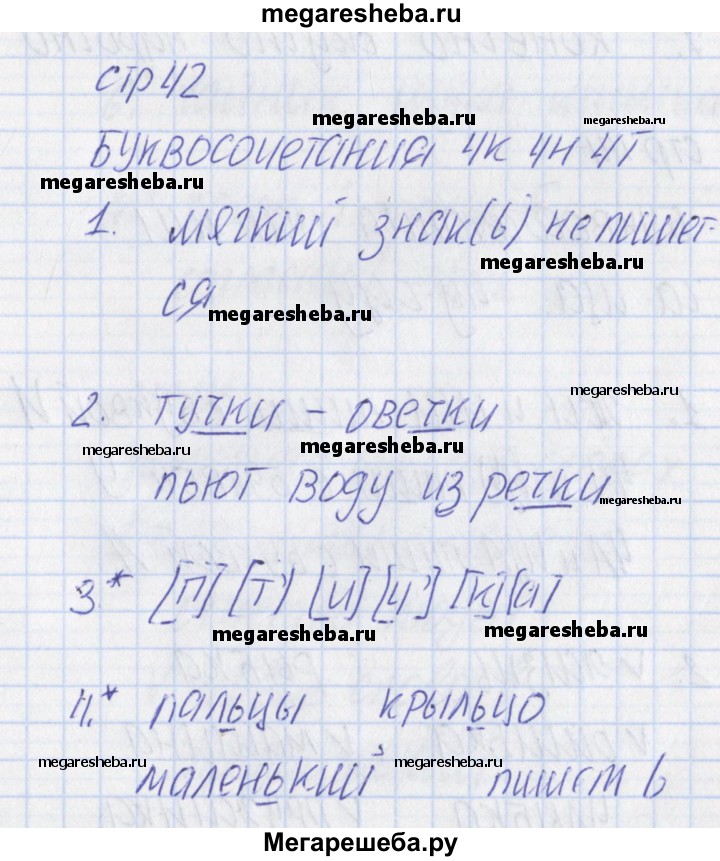 megaresheba.ru
стр 42
megaresheba.ru megaresheba.ru
Буквосочетания чк чн чт
megaresheba.ru
1. мягкий знак(ь) не пишет-
megaresheba.ru
ся
megaresheba.ru
megaresheba.ru
2. тучки - овечки
megaresheba.ru megaresheba.ru
пьют воду из речки
megaresheba.ru
3.* [п] [т'] [и] [ч'] [к] [а]
megaresheba.ru megaresheba.ru
4.* пальцы крыльцо
megaresheba.ru megaresheba.ru
маленький пишем ь
Мегарешеба.ру